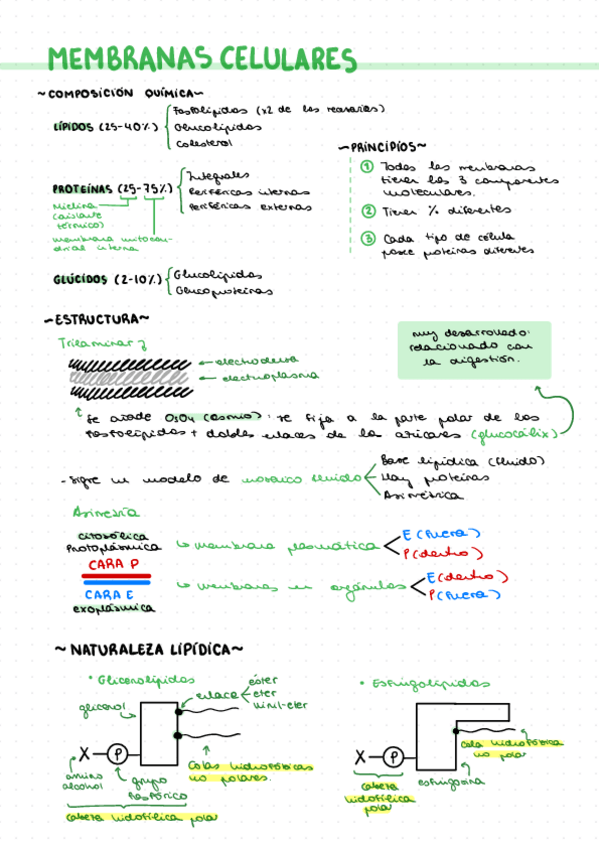 MEMBRANAS CELULARES
~COMPOSICIÓN QUÍMICA~
LÍPIDOS (25-40%)
Fosfolípidos (x2 de los necesarios)
Glucolípidos
Colesterol
PROTEÍNAS (25-75%)
Integrales
Periféricas internas
Periféricas externas
Mielina
(aislante
térmico)
membrana mitocon-
drial interna
GLÚCIDOS (2-10%)
Glucolípidos
Glucoproteínas
~PRINCIPIOS~
1 Todas las membranas
tienen los 3 componentes
moleculares.
2 Tienen % diferentes
3 Cada tipo de célula
posee proteínas diferentes
~ESTRUCTURA~
Trilaminar
electrodensa
electroplasma
muy desarrollado:
relacionado con
la digestión.
Se añade OsO4 (osmio): se fija a la parte polar de los
fosfolípidos + dobles enlaces de los azúcares (glucocálix)
- Sigue un modelo de mosaico fluido
Base lipídica (fluido)
Hay proteínas
Asimétrica
Asimetría
citosólica
Protoplásmica
CARA P
CARA E
exoplásmica
membrana plasmática
E (fuera)
P (dentro)
membranas en orgánulos
E (dentro)
P (fuera)
~ NATURALEZA LIPÍDICA~
• Glicerolípidos
glicerol
enlace
éster
eter
vinil-eter
X
P
amino
alcohol
grupo
fosfórico
Colas hidrofóbicas
no polares.
cabeza hidrofílica polar
• Esfingolípidos
X
P
cola hidrofóbica
no polar
esfingosina
cabeza
hidrofílica
polar